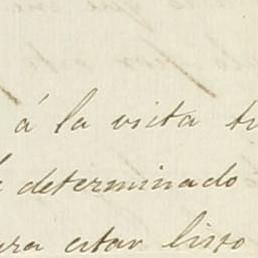 á la visita
determinado
estar listo